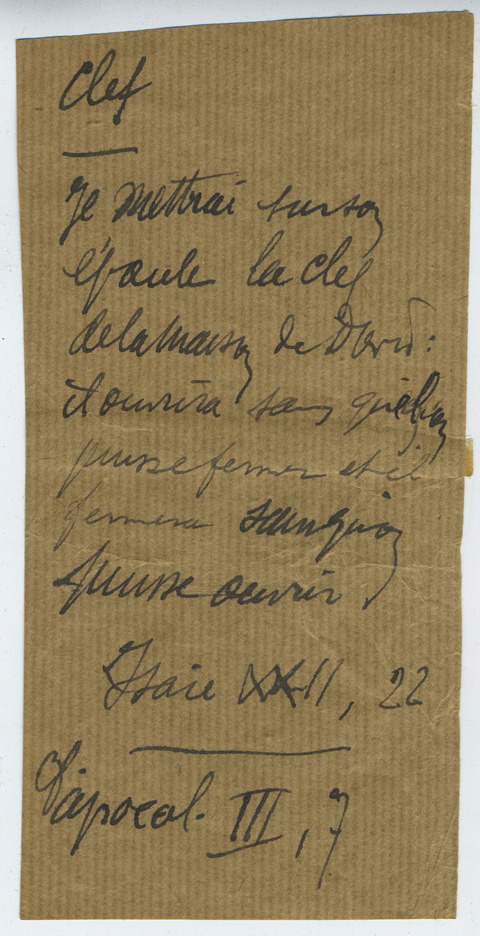 Clef
Je mettrai sur son
épaule la clef
de la maison de David :
il ouvrira sans qu'on
puisse fermer et il
fermera sans qu'on
puisse ouvrir
Isaïe XXII, 22
l'apocal. III, 7